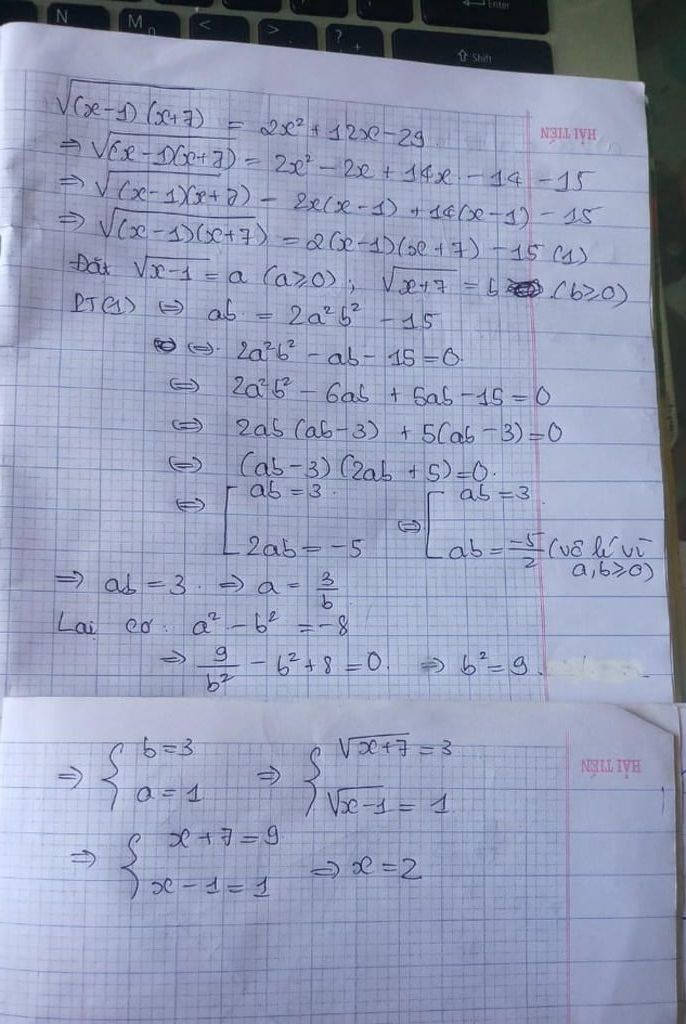 N M < > ? Enter
Shift
HẢI TIẾN
√(x-1)(x+7) = 2x² + 12x - 29
⇒ √(x-1)(x+7) = 2x² - 2x + 14x - 14 - 15
⇒ √(x-1)(x+7) - 2x(x-1) + 14(x-1) - 15
⇒ √(x-1)(x+7) = 2(x-1)(x+7) - 15 (1)
Đặt √x-1 = a (a≥0); √x+7 = b (b≥0)
PT(1) ⇔ ab = 2a²b² - 15
⇔ 2a²b² - ab - 15 = 0
⇔ 2a²b² - 6ab + 5ab - 15 = 0
⇔ 2ab(ab-3) + 5(ab-3) = 0
⇔ (ab-3)(2ab+5) = 0
⇔ [ab = 3 ⇔ [ab = 3
2ab = -5 ab = -5/2 (vô lí vì a,b≥0)
⇒ ab = 3 ⇒ a = 3/b
Lại có: a² - b² = -8
⇒ 9/b² - b² + 8 = 0 ⇒ b² = 9
HẢI TIẾN
⇒ {b = 3 ⇒ {√x+7 = 3
a = 1 √x-1 = 1
⇒ {x+7 = 9
x-1 = 1 ⇒ x = 2